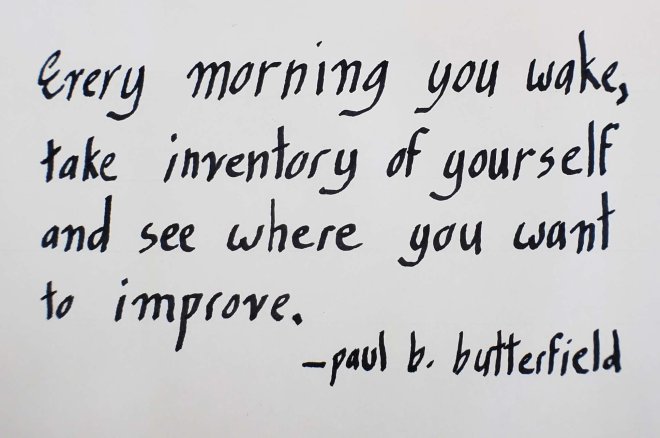 Every morning you wake,
take inventory of yourself
and see where you want
to improve.
-paul b. butterfield